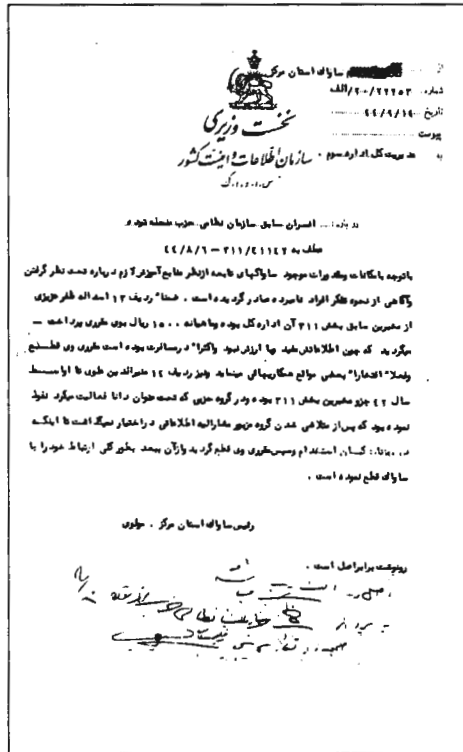 از ساواك استان مركز
شماره ۲۰/۲۲۲۵۳/الف
تاریخ ۴۴/۹/۱۴
پیوست
به مدیریت کل اداره سوم .
نخست وزیری
سازمان اطلاعات و امنیت کشور
س.ا.و.ا.ک
درباره افسران سابق سازمان نظامی حزب منحله توده
عطف به ۳۱۱/۴۱۱۴۲ - ۴۴/۸/۶
باتوجه بامکانات ومقدورات موجود ساواکهای تابعه ازنظر منابع آموزش لازم درباره تحت نظر گرفتن
وآگاهی از نحوه تفکر افراد نامبرده صادر گردیده است . ضمنا" ردیف ۱۳ اسداله ظفر عزیزی
از مخبرین سابق بخش ۳۱۱ آن اداره کل بوده وماهیانه ۱۵۰۰ ریال بوی مقرری پرداخت –
میگردید که چون اطلاعاتش مفید وبا ارزش نبود واکثرا" در مسافرت بوده است مقرری وی قطع
وفعلا" افتخارا" بعضی مواقع همکاریهائی مینماید ونیز ردیف ۱۴ منیرالدین طوی تا اواسط
سال ۴۲ جزو مخبرین بخش ۳۱۱ بوده ودر گروه حزبی که تحت عنوان دانا فعالیت میکرد نفوذ
نموده بود که پس از متلاشی شدن گروه مزبور مشارالیه اطلاعاتی در اختیار نمیگذاشت تا اینکه
در استخدام وسپس مقرری وی قطع گردید وازآن ببعد بطور کلی ارتباط خود را با
ساواك قطع نموده است .
رئیس ساواك استان مرکز . مولوی
رونوشت برابر اصل است .
اصل در